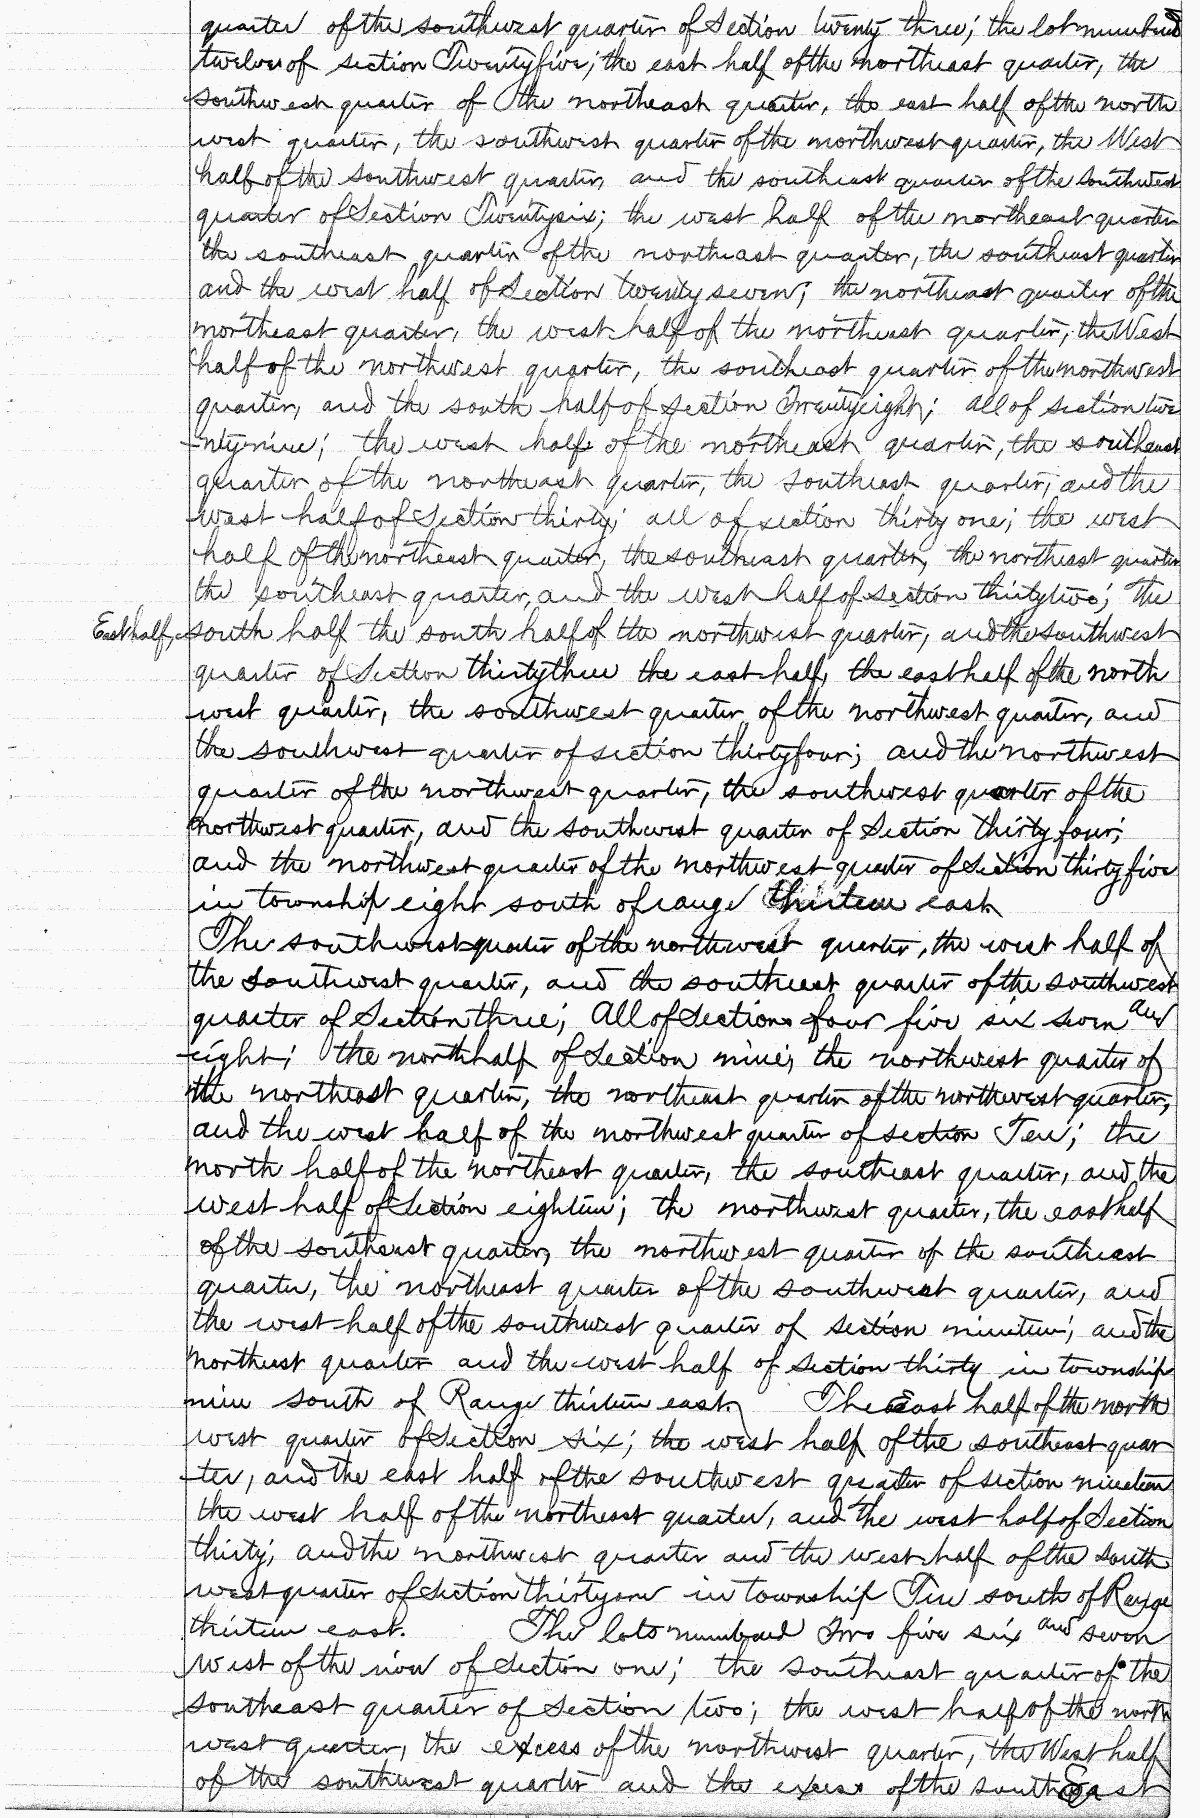 quarter of the southwest quarter of Section twenty three; the lot numbered
twelve of section Twentyfive; the east half of the northeast quarter, the
southwest quarter of the northeast quarter, the east half of the north
west quarter, the southwest quarter of the northwest quarter, the West
half of the southwest quarter, and the southeast quarter of the southwest
quarter of Section Twentysix; the west half of the northeast quarter
the southeast quarter of the northeast quarter, the southeast quarter
and the west half of Section twenty seven; the northeast quarter of the
northeast quarter, the west half of the northeast quarter, the West
half of the northwest quarter, the southeast quarter of the northwest
quarter, and the south half of section Twentyeight; all of section twe
nty-nine; the west half of the northeast quarter, the southeast
quarter of the northeast quarter, the southeast quarter, and the
west half of Section thirty; all of section thirty one; the west
half of the northeast quarter, the southeast quarter, the northeast quarter
the southeast quarter, and the west half of section thirtytwo; the
East half,
south half the south half of the northwest quarter, and the southwest
quarter of Section thirtythree the east half, the east half of the north
west quarter, the southwest quarter of the northwest quarter, and
the southwest quarter of section thirtyfour; and the northwest
quarter of the northwest quarter, the southwest quarter of the
northwest quarter, and the southwest quarter of Section thirty four;
and the northwest quarter of the northwest quarter of Section thirty five
in township eight south of range thirteen east
The southwest quarter of the northwest quarter, the west half of
the southwest quarter, and the southeast quarter of the southwest
quarter of Section three; All of Sections four five six seven and
eight; the north half of Section nine; the northwest quarter of
the northeast quarter, the northeast quarter of the northwest quarter,
and the west half of the northwest quarter of section Ten; the
north half of the northeast quarter, the southeast quarter, and the
west half of Section eighteen; the northwest quarter, the east half
of the southeast quarter, the northwest quarter of the southeast
quarter, the northeast quarter of the southwest quarter, and
the west half of the southwest quarter of section nineteen; and the
northeast quarter and the west half of section thirty in township
nine south of Range thirteen east. The East half of the north
west quarter of Section six; the west half of the southeast quar
ter, and the east half of the southwest quarter of section nineteen
the west half of the northeast quarter, and the west half of Section
thirty; and the northwest quarter and the west half of the south
west quarter of Section thirtyone in township Ten south of Range
thirteen east. The lots numbered Two five six and seven
west of the river of Section one; the southeast quarter of the
southeast quarter of Section two; the west half of the north
west quarter, the excess of the northwest quarter, the West half
of the southwest quarter and the excess of the southEast